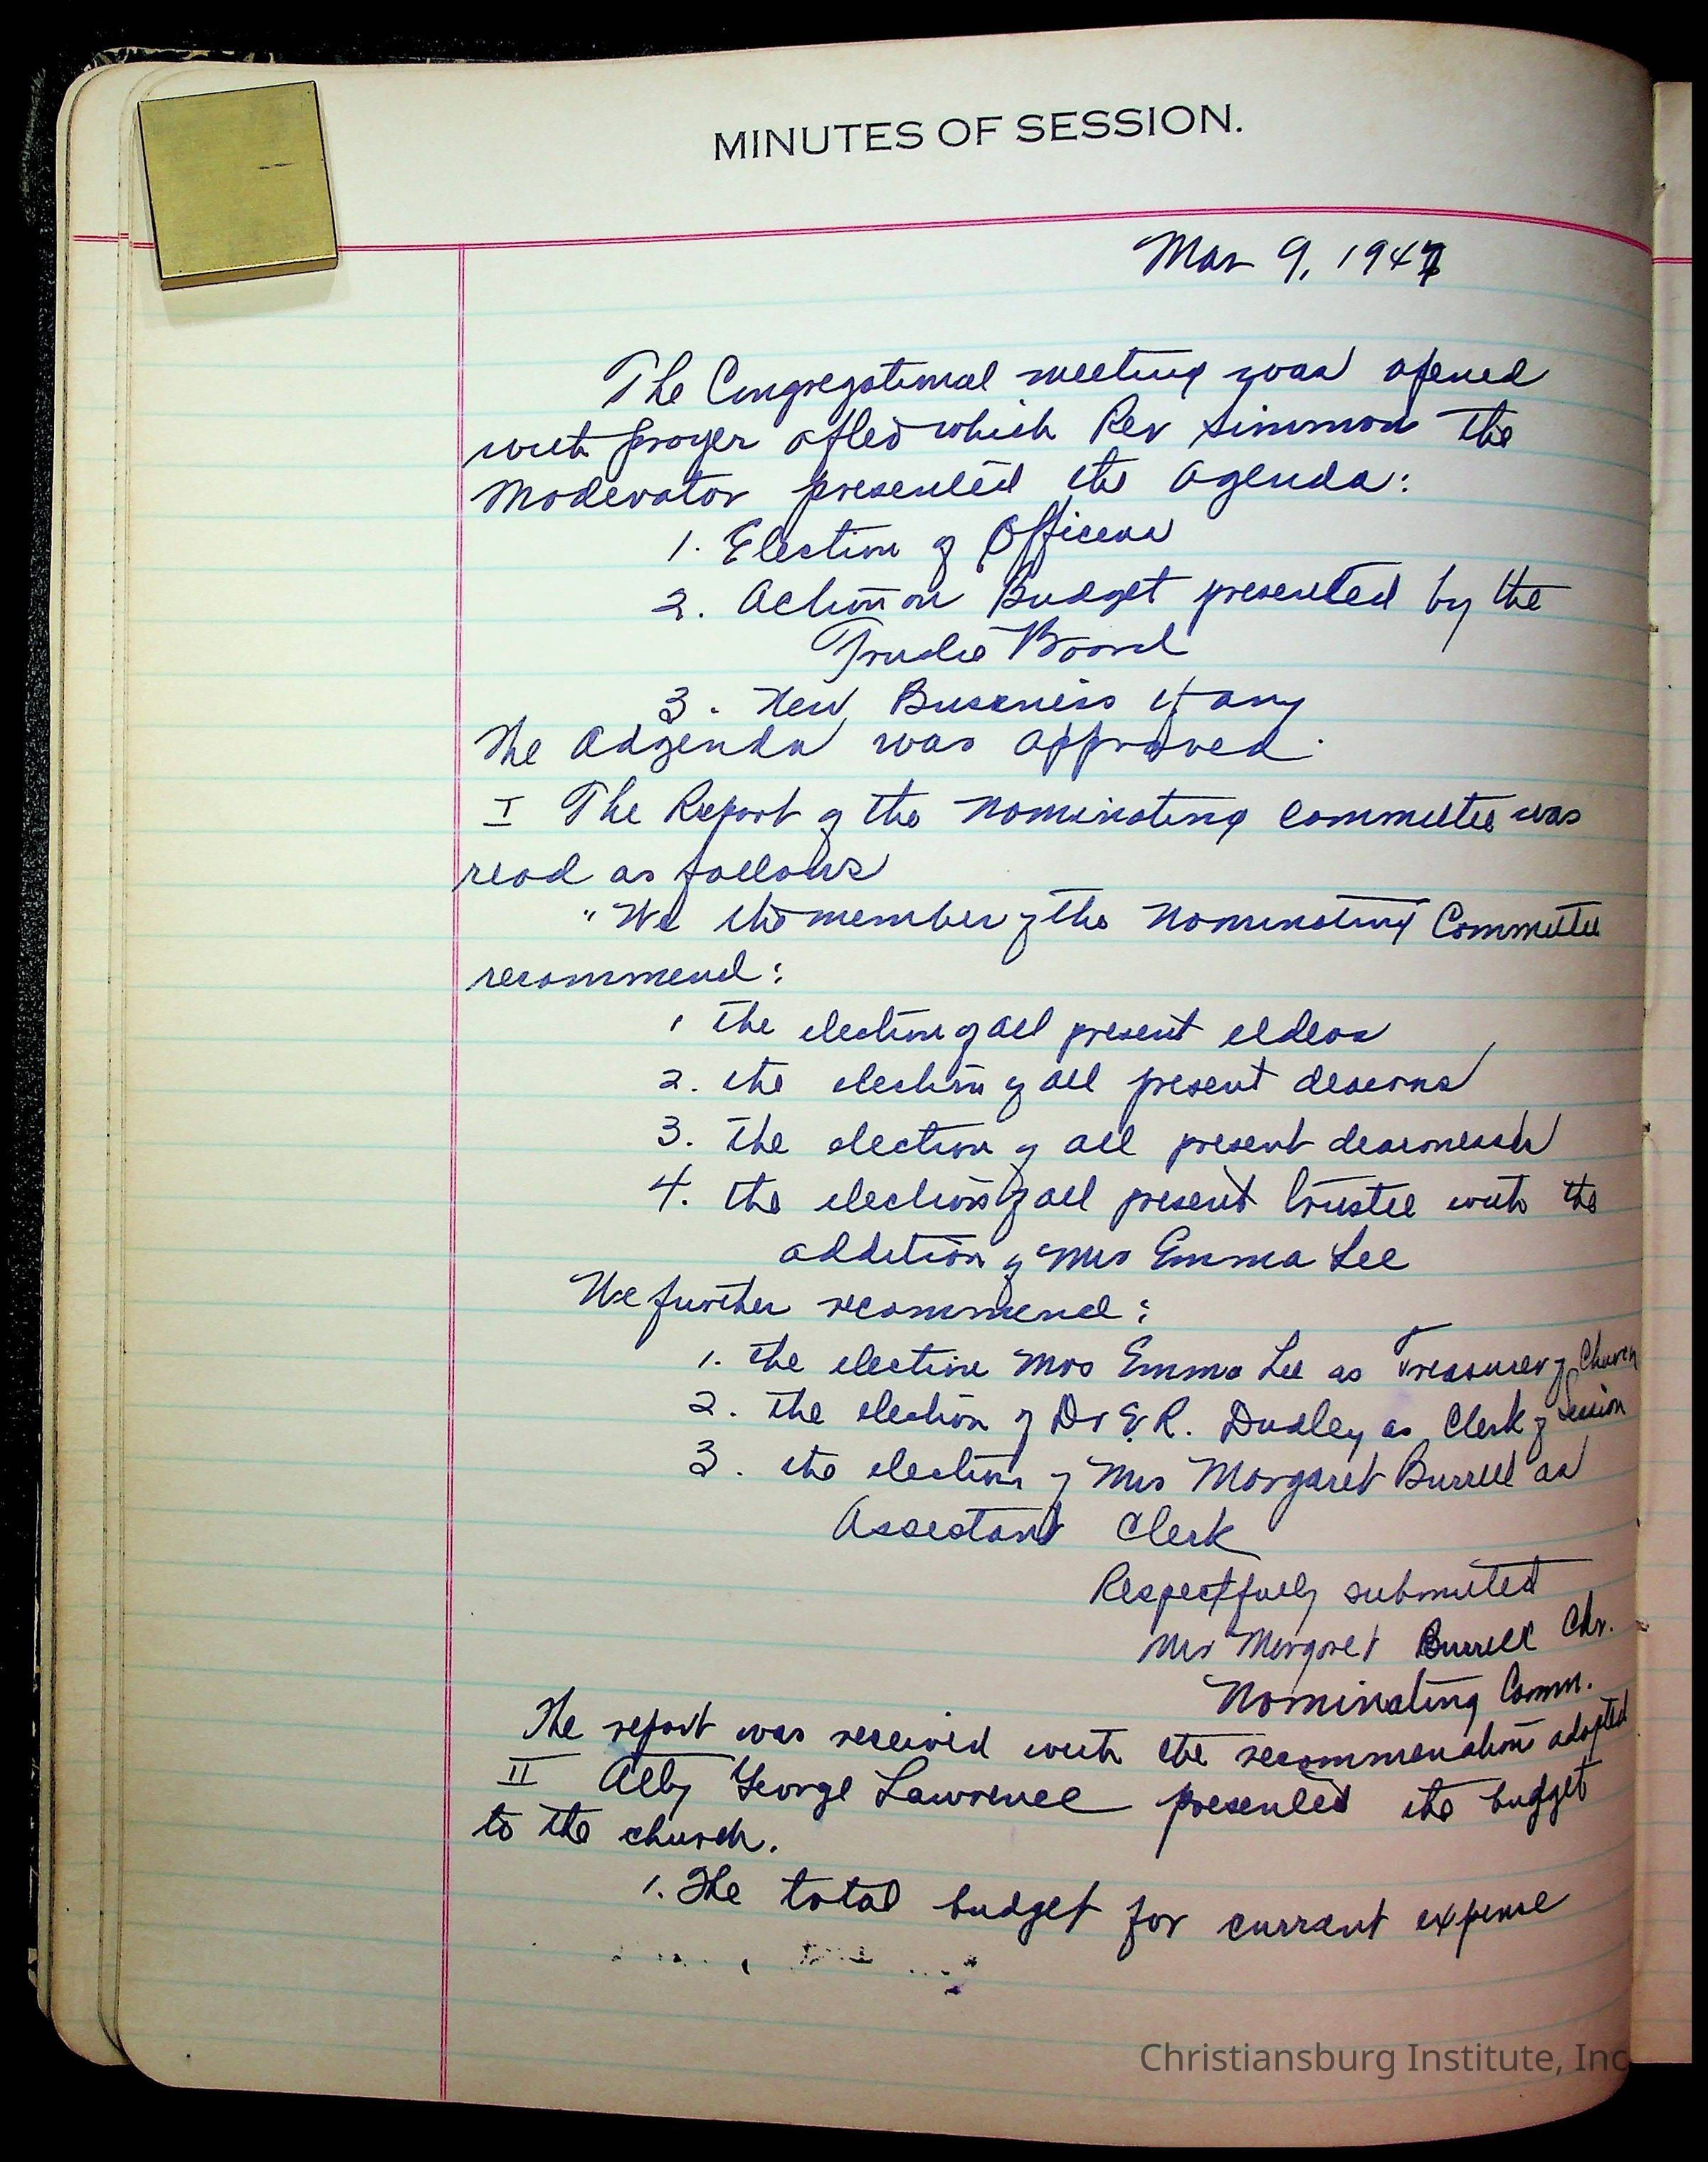 MINUTES OF SESSION.
Mar 9, 1947
The Congregational meeting was opened
with prayer after which Rev Simmons the
Moderator presented the agenda:
1. Election of Officers
2. Action on Budget presented by the
Trustee Board
3. New Business if any
The adgenda was approved.
I The Report of the nominating committee was
read as follows
"We the member of the Nominating Committee
recommend:
1 the election of all present elders
2. the election of all present deacons
3. the election of all present deaconess
4. the election of all present trustee with the
addition of Mrs Emma Lee
We further recommend:
1. the election Mrs Emma Lee as Treasurer of Church
2. the election of Dr E.R. Dudley as Clerk of Session
3. the election of Mrs Margaret Burrell as
Assistant Clerk
Respectfully submitted
Mrs Margaret Burrell Chr.
Nominating Comm.
The report was received with the recommendations adopted
II Atty George Lawrence presented the budget
to the church.
1. The total budget for currant expense
Christiansburg Institute, Inc